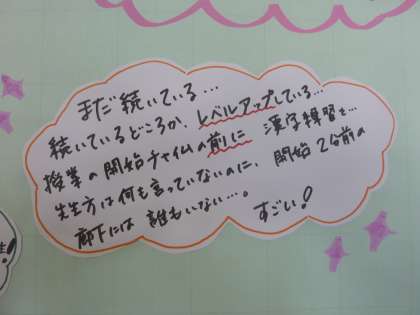 まだ続いている…
続いているどころか、レベルアップしている…
授業の開始チャイムの前に 漢字練習を…
先生方は何も言っていないのに、開始2分前の
廊下には 誰もいない…。
すごい!